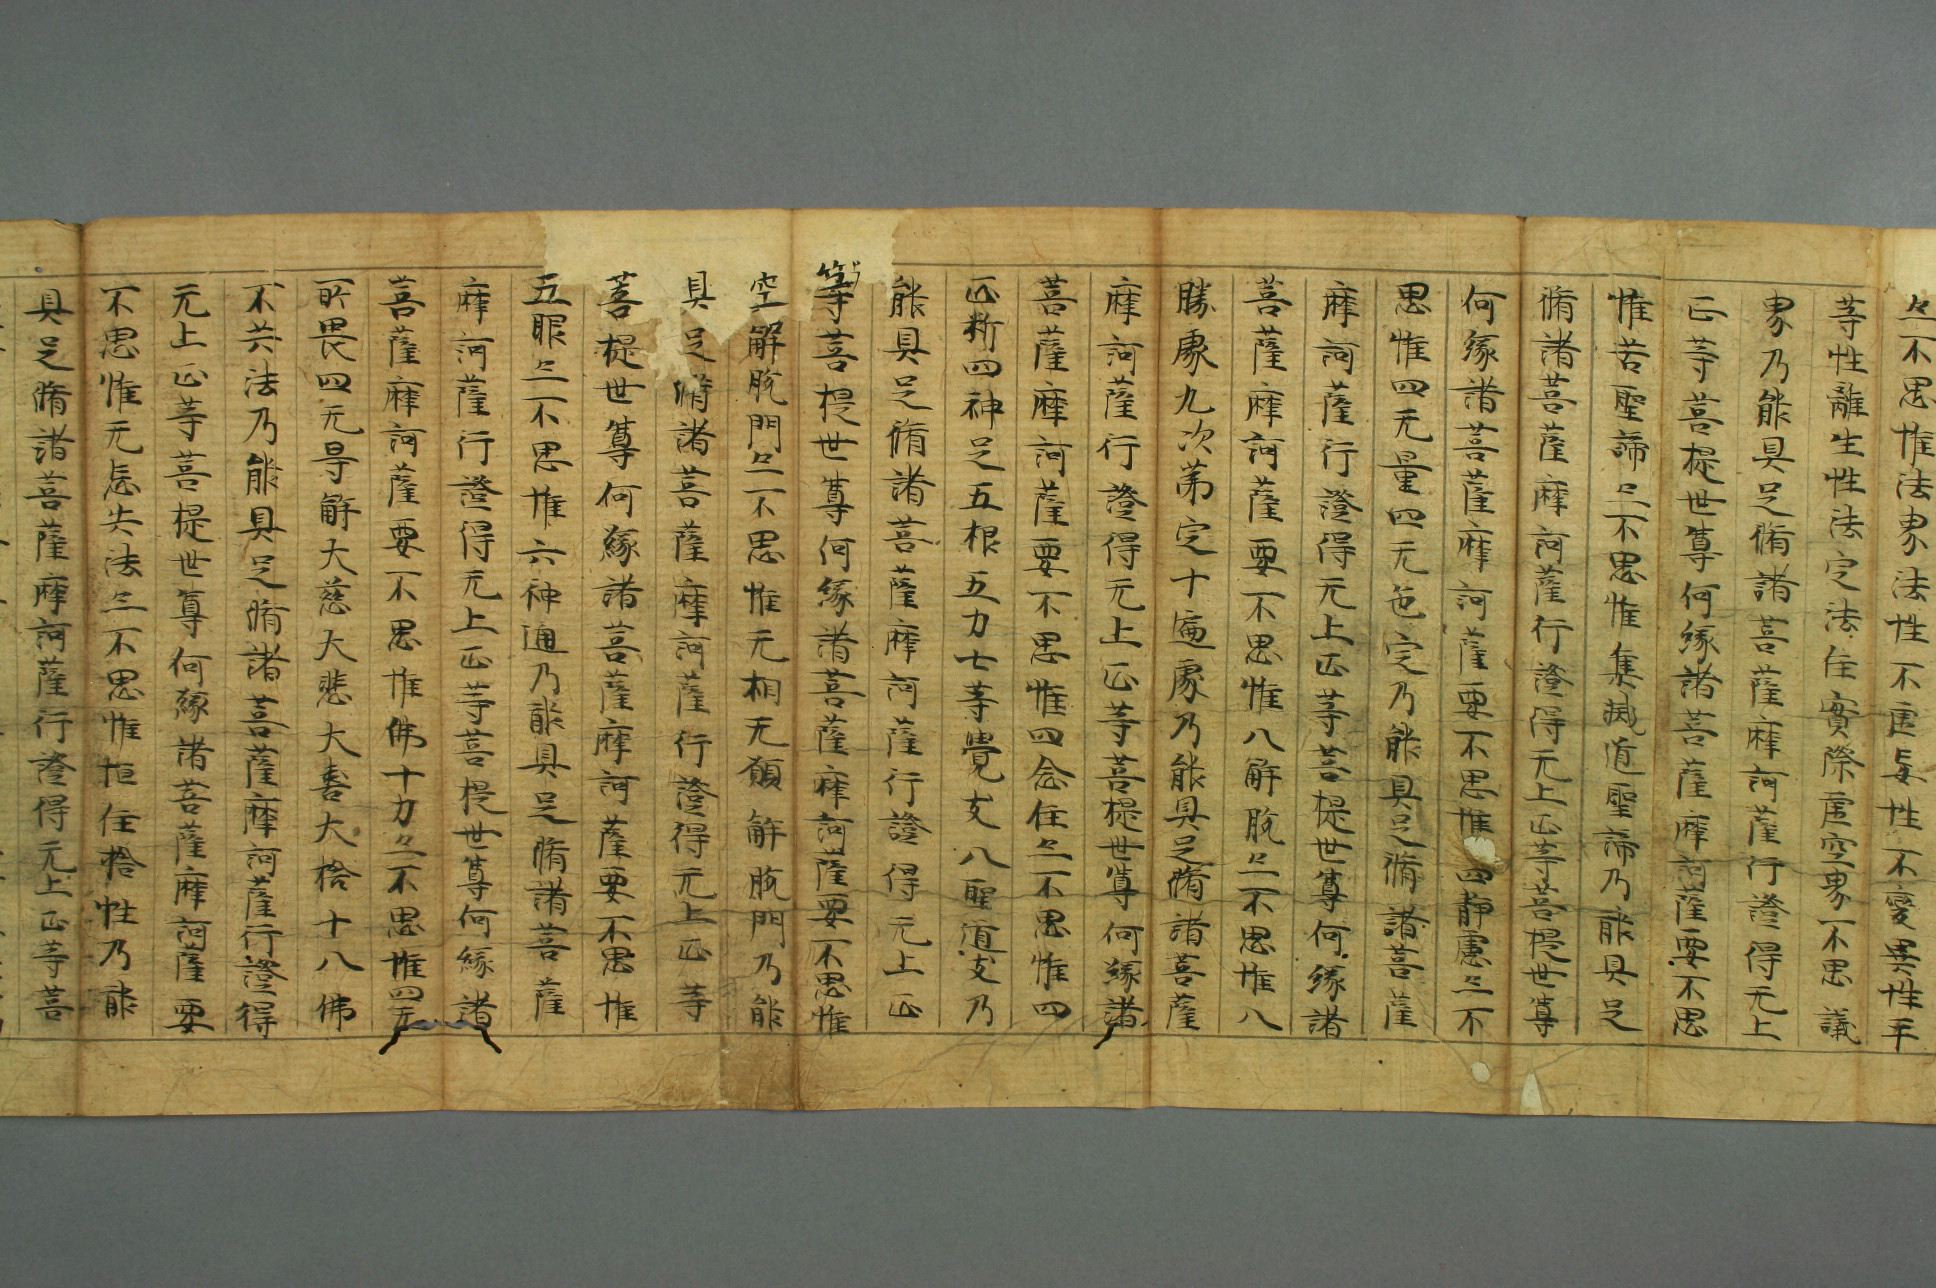 々不思惟法界法性不虚妄性不變異性平
等性離生性法定法住實際虚空界不思議
界乃能具足脩諸菩薩摩訶薩行證得无上
正等菩提世尊何緣諸菩薩摩訶薩要不思
惟苦聖諦々不思惟集滅道聖諦乃能具足
脩諸菩薩摩訶薩行證得无上正等菩提世尊
何緣諸菩薩摩訶薩要不思惟四靜慮々不
思惟四无量四无色定乃能具足脩諸菩薩
摩訶薩行證得无上正等菩提世尊何緣諸
菩薩摩訶薩要不思惟八解脫々不思惟八
勝處九次第定十遍處乃能具足脩諸菩薩
摩訶薩行證得无上正等菩提世尊何緣諸
菩薩摩訶薩要不思惟四念住々不思惟四
正斷四神足五根五力七等覺支八聖道支乃
能具足脩諸菩薩摩訶薩行證得无上正
等菩提世尊何緣諸菩薩摩訶薩要不思惟
空解脫門々不思惟无相无願解脫門乃能
具足脩諸菩薩摩訶薩行證得无上正等
菩提世尊何緣諸菩薩摩訶薩要不思惟
五眼々不思惟六神通乃能具足脩諸菩薩
摩訶薩行證得无上正等菩提世尊何緣諸
菩薩摩訶薩要不思惟佛十力々不思惟四无
所畏四无导解大慈大悲大喜大捨十八佛
不共法乃能具足脩諸菩薩摩訶薩行證得
无上正等菩提世尊何緣諸菩薩摩訶薩要
不思惟无忘失法々不思惟恒住捨性乃能
具足脩諸菩薩摩訶薩行證得无上正等菩